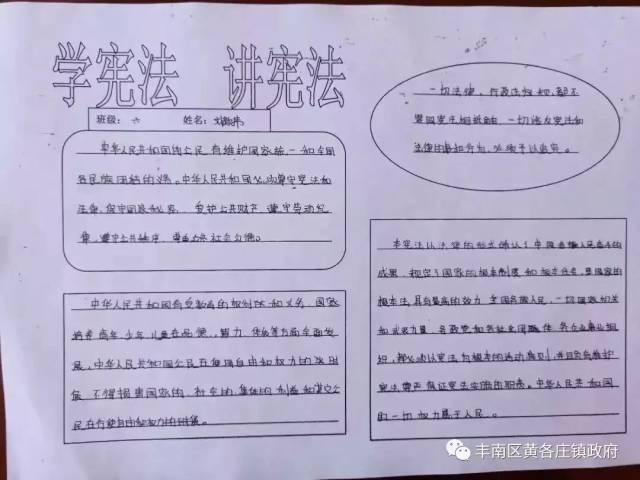 学宪法 讲宪法
班级：六 姓名：
中华人民共和国的公民有维护国家统一和全国
各民族团结的义务。中华人民共和国公民必须遵守宪法和
法律，保守国家秘密，爱护公共财产，遵守劳动纪
律，遵守公共秩序，尊重公共社会公德。
中华人民共和国有受教育的权利和义务，国家
培养青年、少年、儿童在品德、智力、体质等方面全面发
展，中华人民共和国公民在使用自由和权力的时
候，不得损害国家的、社会的、集体的利益和其它公
民在行使自由和权力的
一切法律、行政法规和，都不
得同宪法相抵触，一切违反宪法和
法律的事和行为，必须予以追究。
本宪法以法律的形式确认了中国各族人民奋斗的
成果，规定了国家的根本制度和根本任务，是国家的
根本法，具有最高的效力，全国各族人民，一切国家机关
和武装力量，各政党和各社会团体，各企业事业组
织，都必须以宪法为根本的活动准则，并且负有维护
宪法尊严，保证宪法实施的职责。中华人民共和国
的一切权力属于人民。
丰南区黄各庄镇政府